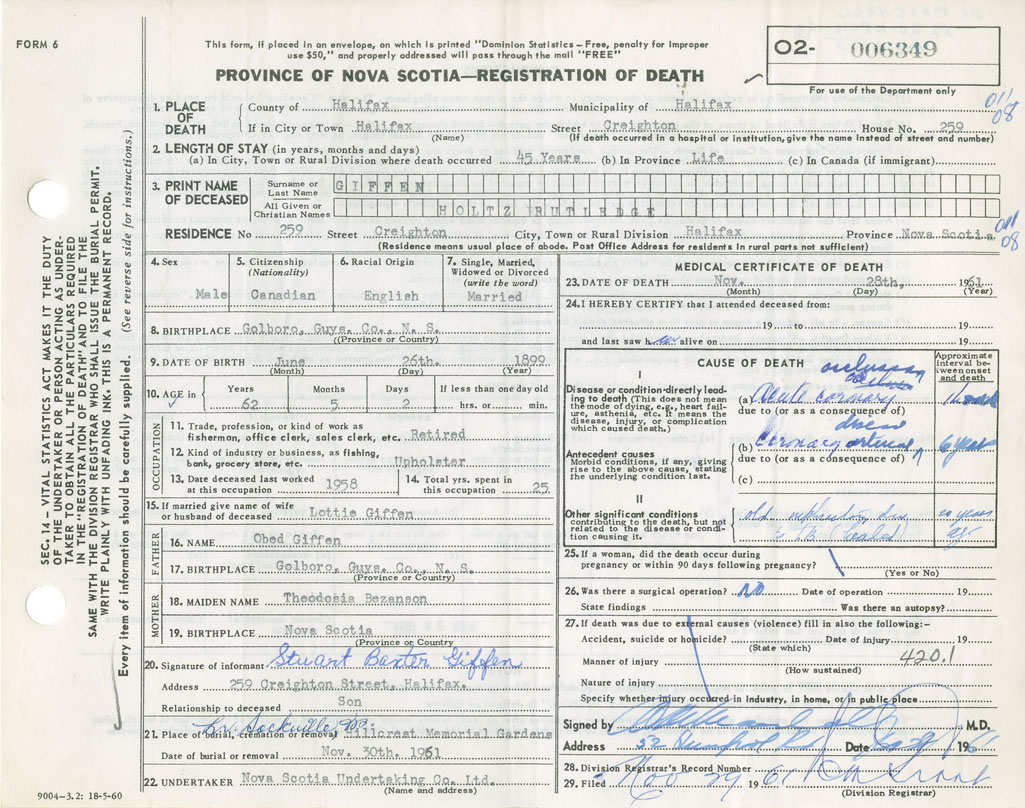 FORM 6
This form, if placed in an envelope, on which is printed "Dominion Statistics – Free, penalty for improper
use $50," and properly addressed will pass through the mail "FREE"
PROVINCE OF NOVA SCOTIA—REGISTRATION OF DEATH
O2- 006349
For use of the Department only
SEC. 14 – VITAL STATISTICS ACT MAKES IT THE DUTY
OF THE UNDERTAKER OR PERSON ACTING AS UNDER-
TAKER TO OBTAIN ALL THE PARTICULARS REQUIRED
IN THE "REGISTRATION OF DEATH" AND TO FILE THE
SAME WITH THE DIVISION REGISTRAR WHO SHALL ISSUE THE BURIAL PERMIT.
WRITE PLAINLY WITH UNFADING INK. THIS IS A PERMANENT RECORD.
Every item of information should be carefully supplied. (See reverse side for instructions.)
1. PLACE OF DEATH
County of Halifax Municipality of Halifax
If in City or Town Halifax Street Creighton House No. 259
(Name) (If death occurred in a hospital or institution, give the name instead of street and number)
011
08
2. LENGTH OF STAY (in years, months and days)
(a) In City, Town or Rural Division where death occurred 45 Years (b) In Province Life (c) In Canada (if immigrant)
3. PRINT NAME OF DECEASED
Surname or Last Name GIFFEN
All Given or Christian Names HOLTZ RUTLEDGE
RESIDENCE No 259 Street Creighton City, Town or Rural Division Halifax Province Nova Scotia
(Residence means usual place of abode. Post Office Address for residents in rural parts not sufficient)
011
08
4. Sex Male
5. Citizenship (Nationality) Canadian
6. Racial Origin English
7. Single, Married, Widowed or Divorced (write the word) Married
8. BIRTHPLACE Golboro, Guys. Co., N. S.
(Province or Country)
9. DATE OF BIRTH June 26th. 1899
(Month) (Day) (Year)
10. AGE in Years 62 Months 5 Days 2 If less than one day old hrs. or min.
OCCUPATION
11. Trade, profession, or kind of work as
fishermen, office clerk, sales clerk, etc. Retired
12. Kind of industry or business, as fishing,
bank, grocery store, etc. Upholster
13. Date deceased last worked at this occupation 1958
14. Total yrs. spent in this occupation 25
15. If married give name of wife
or husband of deceased Lottie Giffen
FATHER
16. NAME Obed Giffen
17. BIRTHPLACE Golboro, Guys. Co., N. S.
(Province or Country)
MOTHER
18. MAIDEN NAME Theodosia Bezanson
19. BIRTHPLACE Nova Scotia
(Province or Country)
20. Signature of informant Stuart Baxter Giffen
Address 259 Creighton Street, Halifax.
Relationship to deceased Son
Sackville
21. Place of burial, cremation or removal Hillcrest Memorial Gardens
Date of burial or removal Nov. 30th. 1961
22. UNDERTAKER Nova Scotia Undertaking Co. Ltd.
(Name and address)
9004–3.2: 18-5-60
MEDICAL CERTIFICATE OF DEATH
23. DATE OF DEATH Nov. 28th, 1961
(Month) (Day) (Year)
24. I HEREBY CERTIFY that I attended deceased from:
19 to 19
and last saw him alive on 19
CAUSE OF DEATH
Approximate interval between onset and death
I
Disease or condition-directly lead-
ing to death (This does not mean
the mode of dying, e.g., heart fail-
ure, asthenia, etc. It means the
disease, injury, or complication
which caused death.)
(a) Acute coronary occlusion
due to (or as a consequence of)
(b) Coronary arterial disease 6 years
due to (or as a consequence of)
(c)
Antecedent causes
Morbid conditions, if any, giving
rise to the above cause, stating
the underlying condition last.
II
Other significant conditions
contributing to the death, but not
related to the disease or condi-
tion causing it.
old TB (healed) 20 years
25. If a woman, did the death occur during
pregnancy or within 90 days following pregnancy?
(Yes or No)
26. Was there a surgical operation? NO Date of operation 19
State findings Was there an autopsy?
27. If death was due to external causes (violence) fill in also the following:-
Accident, suicide or homicide? Date of injury 19
(State which)
Manner of injury 420.1
(How sustained)
Nature of injury
Specify whether injury occurred in industry, in home, or in public place
Signed by M.D.
Address 32 Date 1961
28. Division Registrar's Record Number
29. Filed Nov 29 1961 Grant
(Division Registrar)